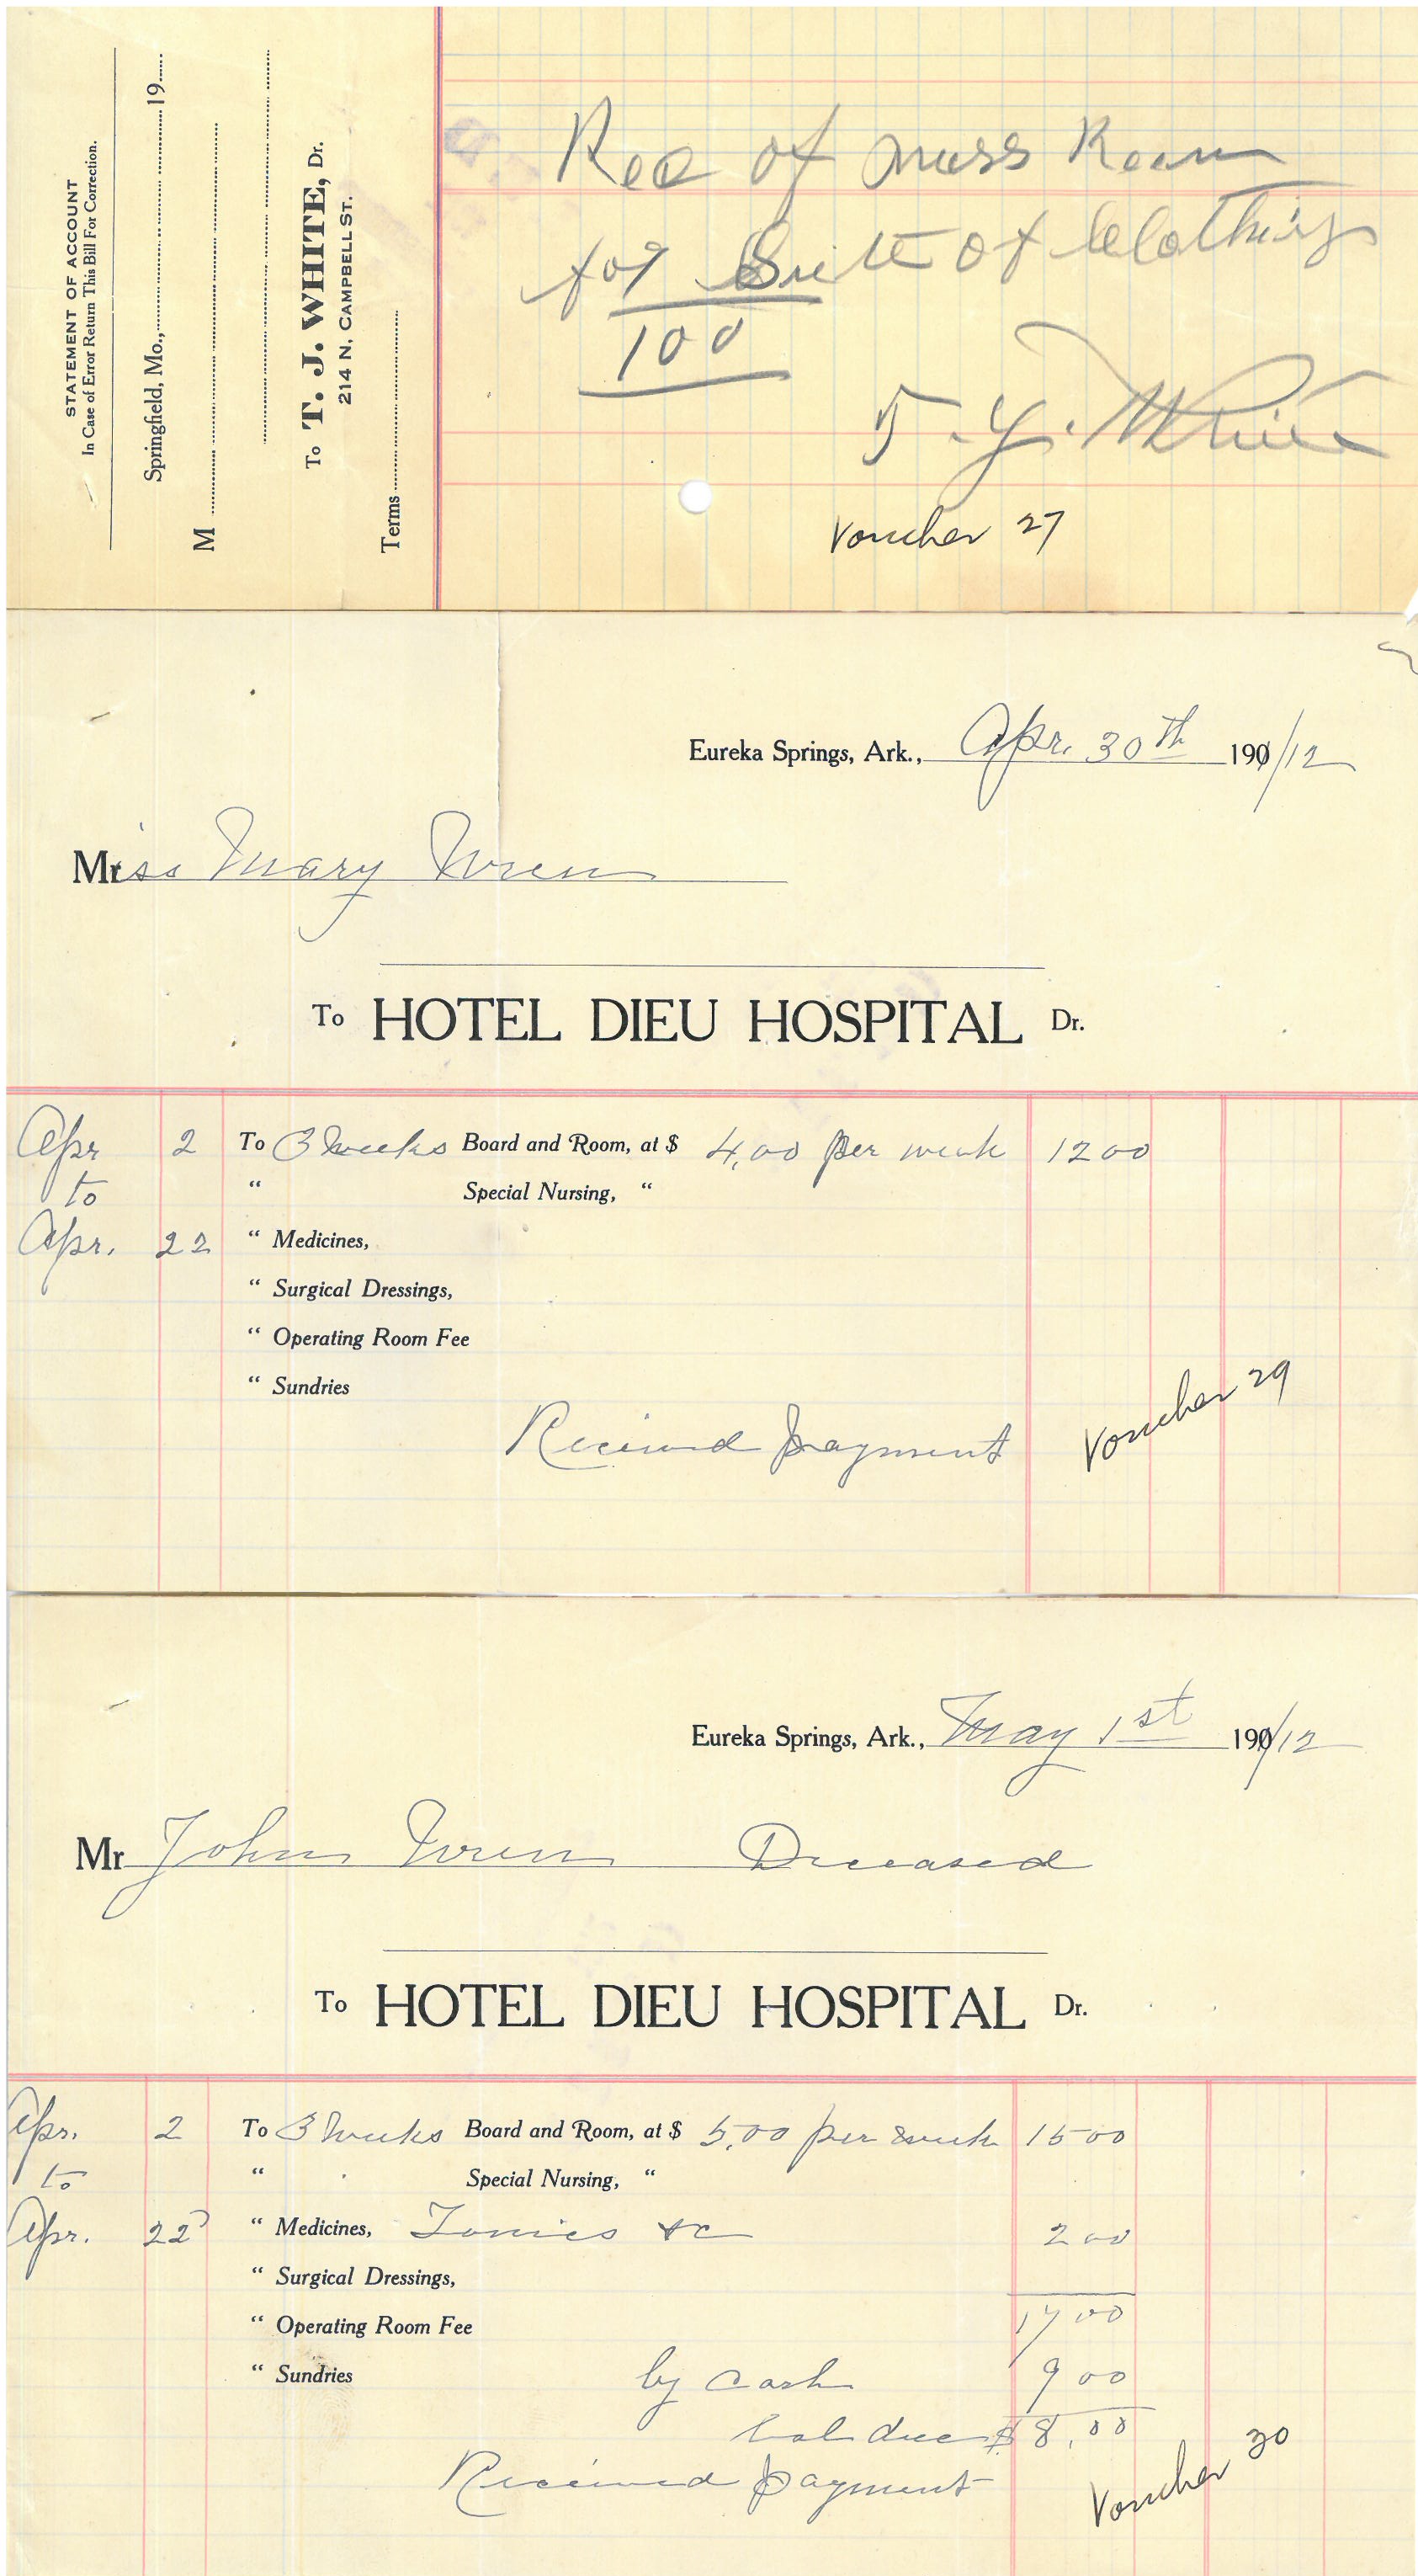 STATEMENT OF ACCOUNT
In Case of Error Return This Bill For Correction.
Springfield, Mo., 19
M
To T. J. WHITE, Dr.
214 N. CAMPBELL ST.
Terms
Rec of miss
for Suite of Clothing
100
T. J. White
Voucher 27
Eureka Springs, Ark., Apr. 30th 190/12
Miss Mary Wren
To HOTEL DIEU HOSPITAL Dr.
Apr 2 To 3 weeks Board and Room, at $ 4,00 per week 12 00
to " Special Nursing, "
Apr. 22 " Medicines,
" Surgical Dressings,
" Operating Room Fee
" Sundries
Received payment
Voucher 29
Eureka Springs, Ark., May 1st 190/12
Mr John Wren Deceased
To HOTEL DIEU HOSPITAL Dr.
Apr. 2 To 3 weeks Board and Room, at $ 5,00 per week 15 00
to " Special Nursing, "
Apr. 22 " Medicines, Tonics &c 2 00
" Surgical Dressings,
" Operating Room Fee 17 00
" Sundries by cash 9 00
bal due $ 8,00
Received payment
Voucher 30